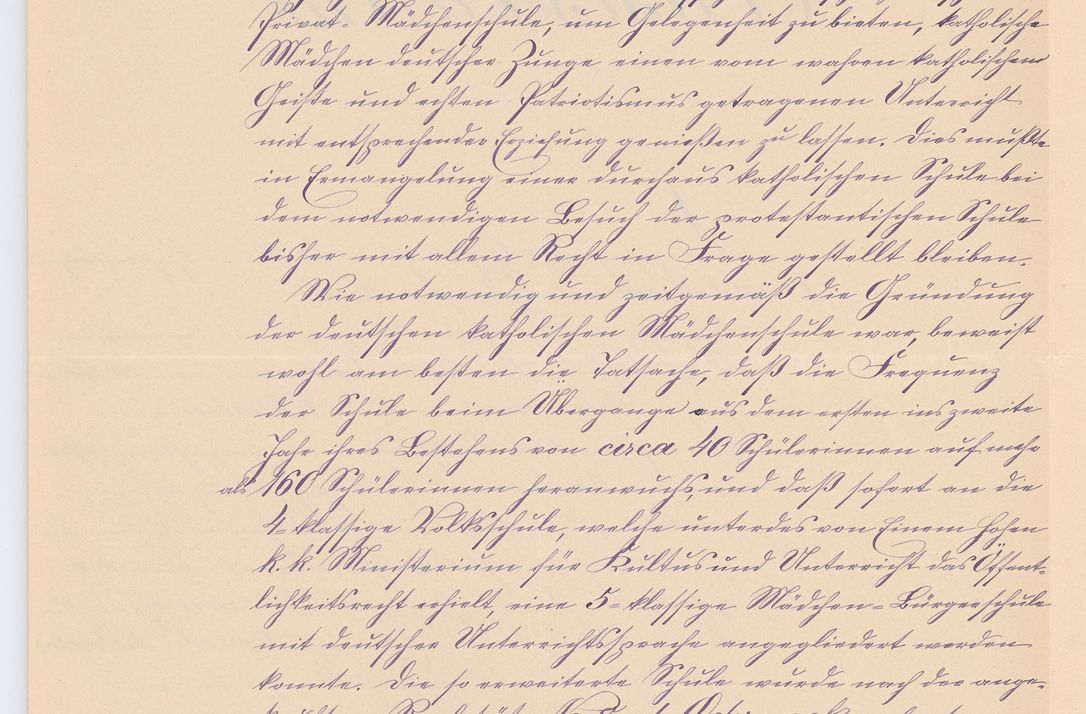 Privat- Mädchenschule, um Gelegenheit zu bieten, katholische
Mädchen deutscher Zunge einen vom wahren katholischen
Geiste und echten Patriotismus getragenen Unterricht
mit entsprechender Erziehung genießen zu lassen. Dies mußte
in Ermangelung einer durchaus katholischen Schule bei
dem notwendigen Besuch der protestantischen Schule
bisher mit allem Recht in Frage gestellt bleiben.
Wie notwendig und zeitgemäß die Gründung
der deutschen katholischen Mädchenschule war, beweist
wohl am besten die Tatsache, daß die Frequenz
der Schule beim Übergange aus dem ersten ins zweite
Jahr ihres Bestehens von circa 40 Schülerinnen auf mehr
als 160 Schülerinnen heranwuchs, und daß sofort an die
4-klassige Volksschule, welche unterdes von Einem Hohen
k. k. Ministerium für Kultus und Unterricht das Öffent-
lichkeitsrecht erhielt, eine 5-klassige Mädchen-Bürgerschule
mit deutscher Unterrichtssprache angegliedert werden
konnte. Die so erweiterte Schule wurde nach der ange-